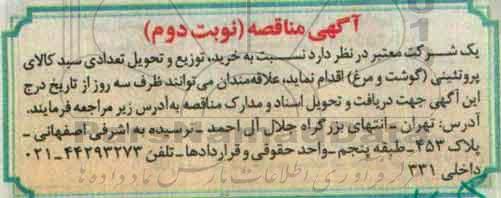 آگهی مناقصه (نوبت دوم)
یک شرکت معتبر در نظر دارد نسبت به خرید، توزیع و تحویل تعدادی سبد کالای
پروتئینی (گوشت و مرغ) اقدام نماید، علاقه‌مندان می‌توانند ظرف سه روز از تاریخ درج
این آگهی جهت دریافت و تحویل اسناد و مدارک مناقصه به آدرس زیر مراجعه فرمایند.
آدرس: تهران - انتهای بزرگراه جلال آل احمد - نرسیده به اشرفی اصفهانی -
پلاک ۴۵۳ - طبقه پنجم - واحد حقوقی و قراردادها - تلفن ۴۴۲۹۳۲۷۳ - ۰۲۱
داخلی ۳۳۱